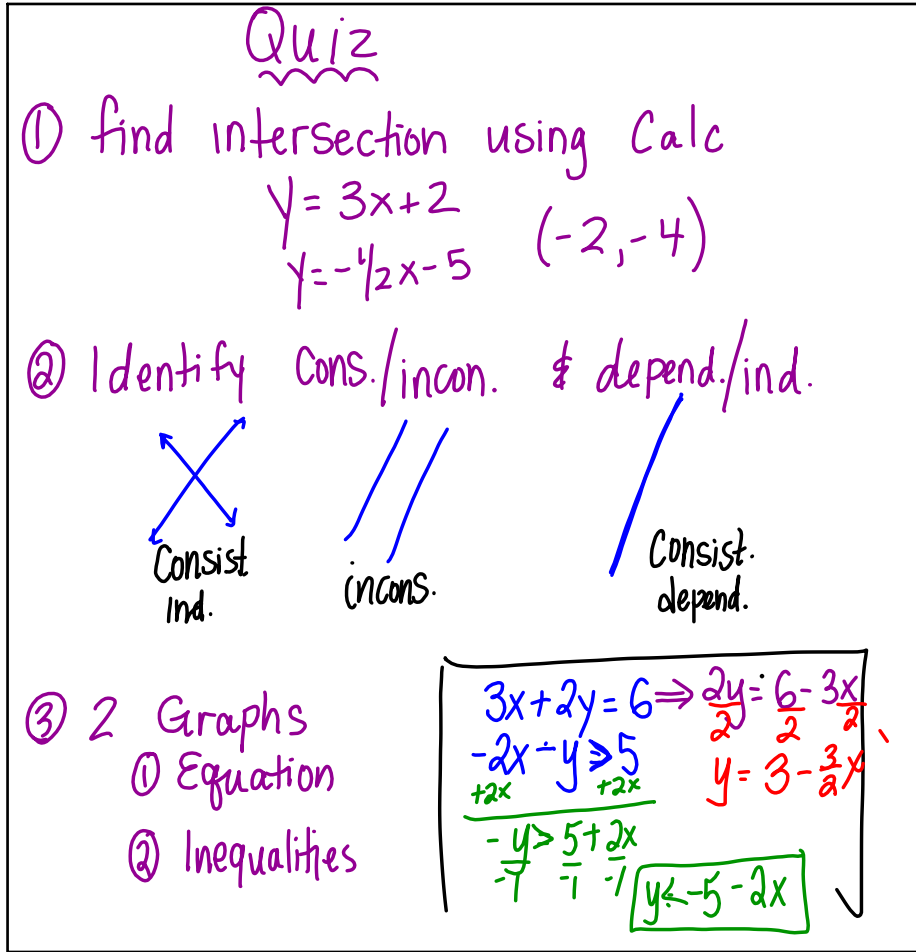 Quiz
① find intersection using Calc
y = 3x+2
y = -1/2x - 5
(-2, -4)
② Identify Cons./incon. & depend./ind.
Consist
Ind.
incons.
Consist.
depend.
③ 2 Graphs
① Equation
② Inequalities
3x+2y = 6 ⇒ 2y = 6 - 3x
2 2 2
-2x - y ≥ 5
+2x +2x
y = 3 - 3/2x
-y > 5 + 2x
-1 -1 -1
y ≤ -5 - 2x